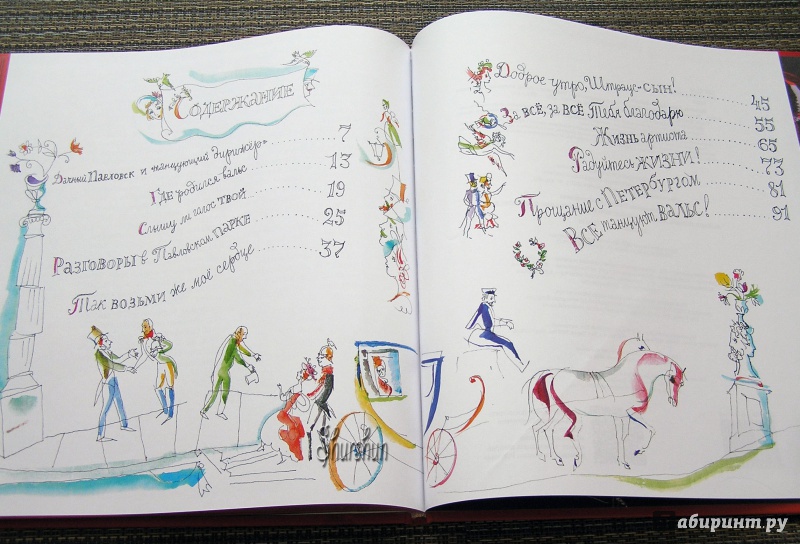 Содержание
Дачный Павловск и танцующий дирижёр 7
Где родился вальс 13
Слышу я голос твой 19
Разговоры в Павловском парке 25
Так возьми же моё сердце 37
Доброе утро, Штраус-сын! 45
За всё, за всё Тебя благодарю 55
Жизнь артиста 65
Радуйтесь жизни! 73
Прощание с Петербургом 81
Все танцуют вальс! 91
Shurshun
абиринт.ру